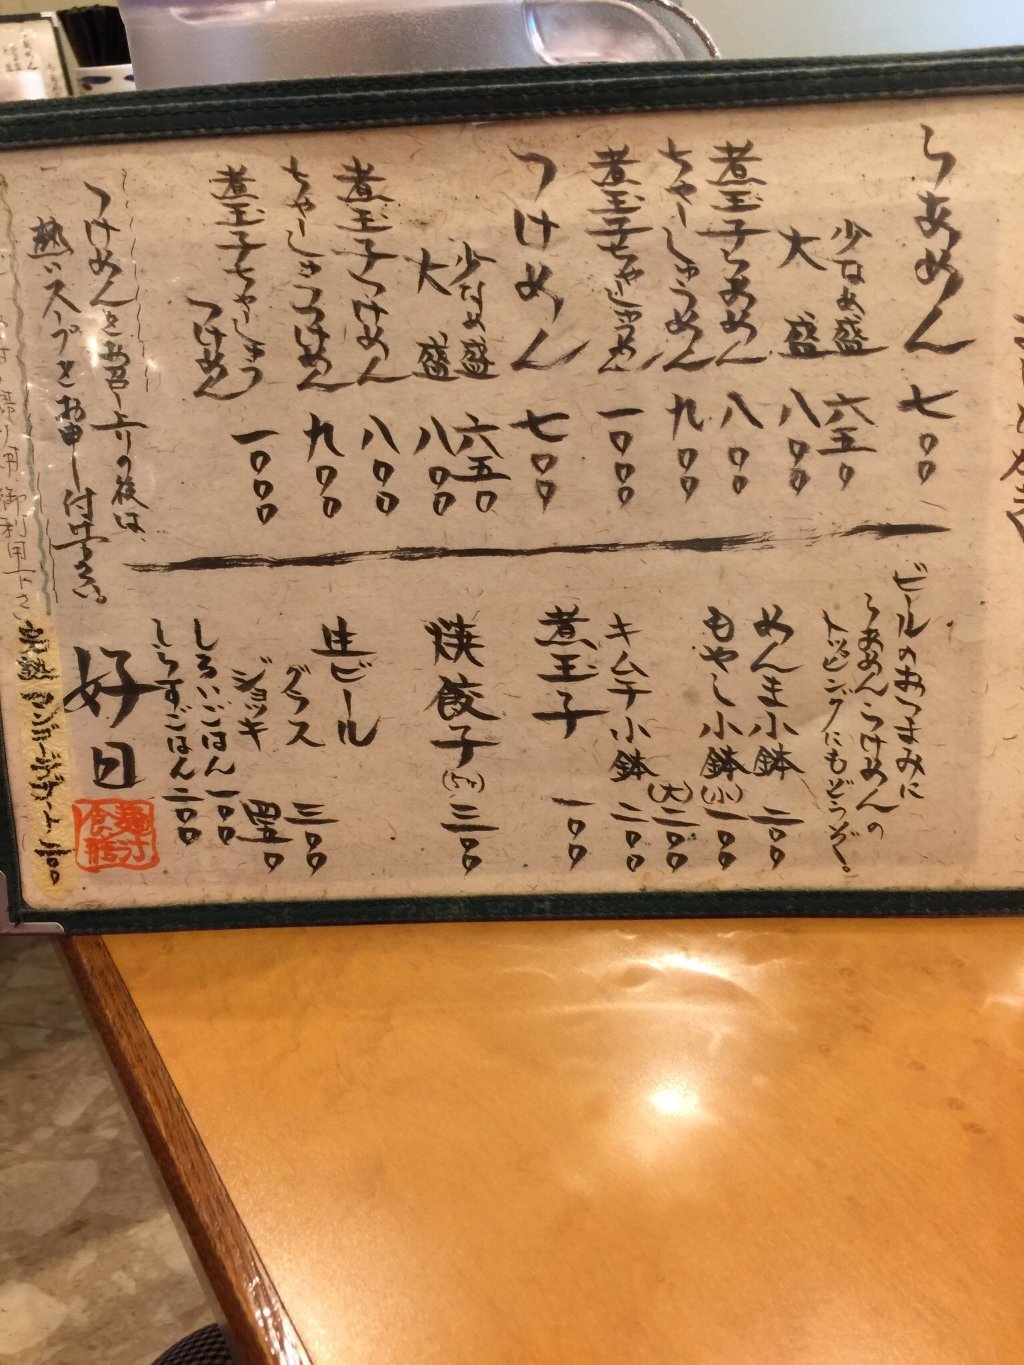 らあめん 七〇〇
少なめ盛 六五〇
大盛 八〇〇
煮玉子らあめん 八〇〇
ちゃーしゅうめん 九〇〇
煮玉子ちゃーしゅうめん 一〇〇〇
つけめん 七〇〇
少なめ盛 六五〇
大盛 八〇〇
煮玉子つけめん 八〇〇
ちゃーしゅうつけめん 九〇〇
煮玉子ちゃーしゅう
つけめん 一〇〇〇
つけめんをお召し上りの後は、
熱いスープをお申し付け下さい。
ビールのおつまみに
らあめん つけめんの
トッピングにもどうぞ。
めんま小鉢 二〇〇
もやし小鉢 (小) 一〇〇
(大) 二〇〇
キムチ小鉢 二〇〇
煮玉子 一〇〇
焼餃子 三〇〇
生ビール
グラス 三〇〇
ジョッキ 四五〇
しろいごはん 一〇〇
しらすごはん 二〇〇
好日
完熟マンゴーデザート 三〇〇
御利用下さい